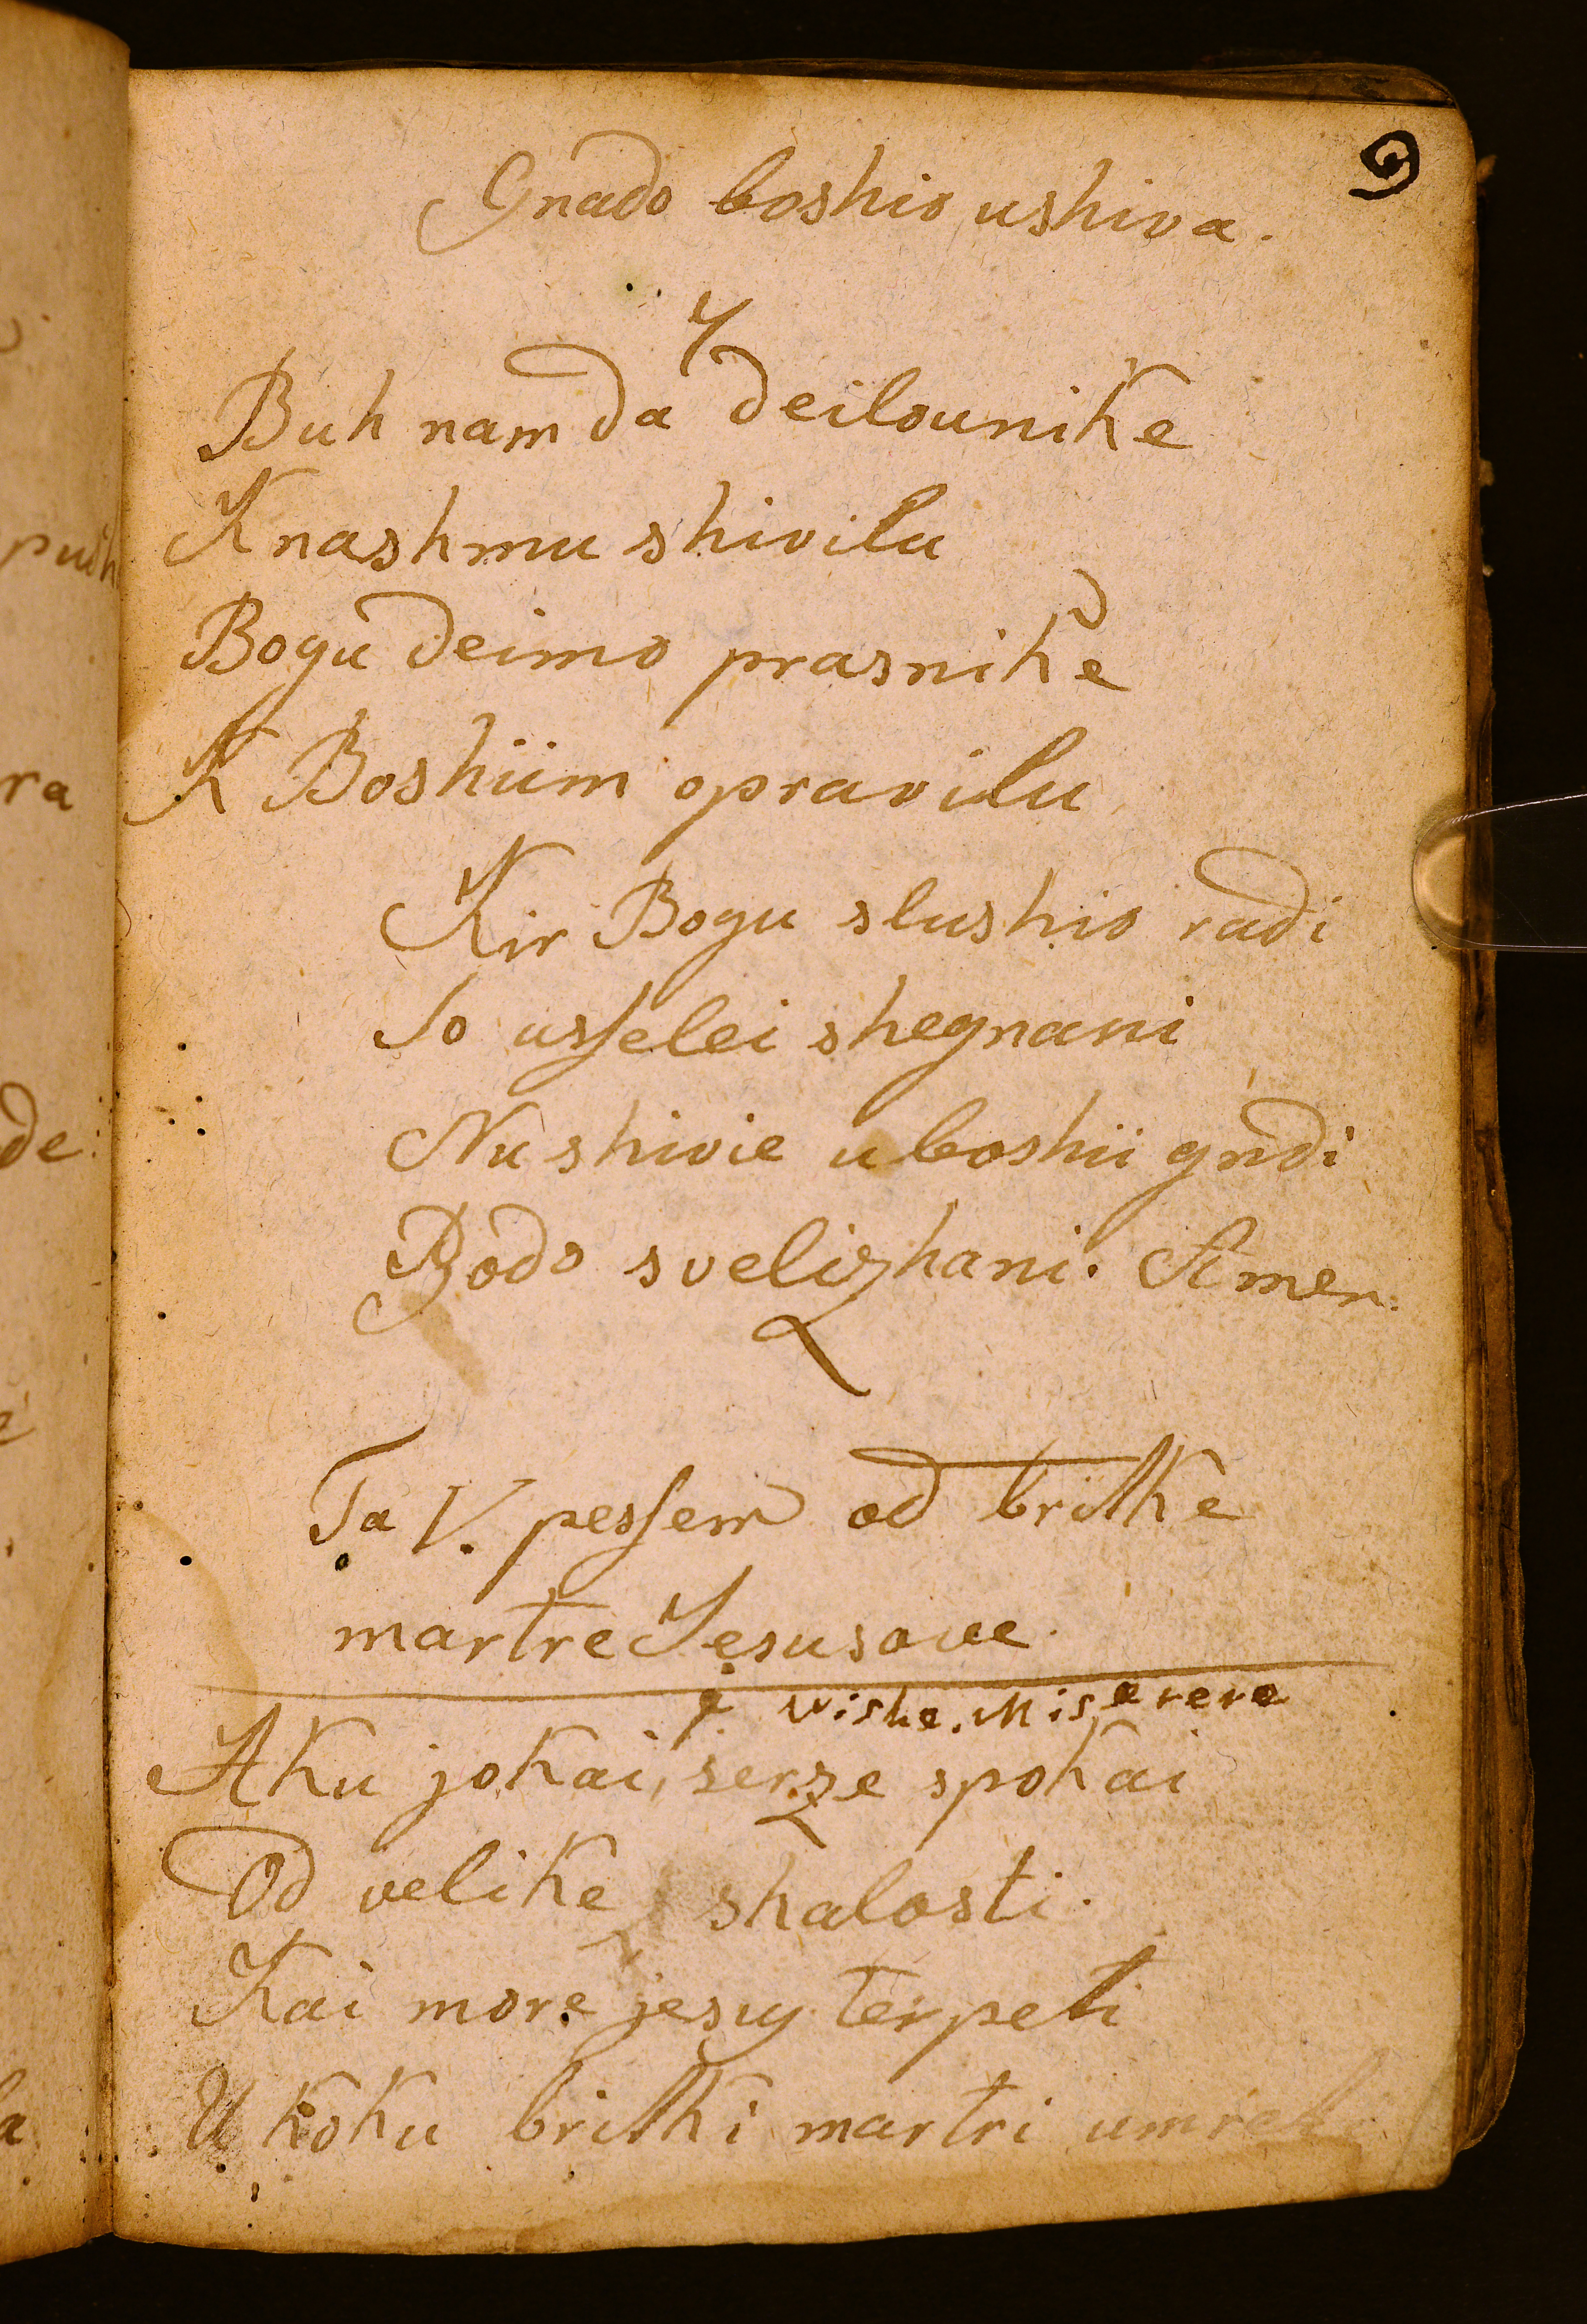 9
Gnado boshio ushiva.
7
Buh nam da deilounike
K nashmu shivilu
Bogu deimo prasnike
K Boshiim opravilu
Kir Bogu slushio radi
So usselei shegnani
Nu shivie u boshii gndi
Bodo svelizhani. Amen.
Ta V. pessem od britke
martre Jesusove.
Wishe. Miserere
Aku jokai, serze spokai
Od velike shalosti.
Kai more jesus terpeti
U koku britki martri umreti